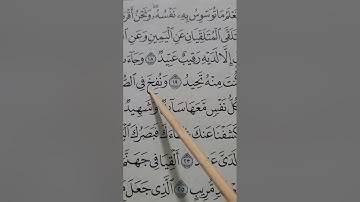 نَعْلَمُ مَا تُوَسْوِسُ بِهِۦ نَفْسُهُۥ ۖ وَنَحْنُ أَقْرَ
تَلَقَّى ٱلْمُتَلَقِّيَانِ عَنِ ٱلْيَمِينِ وَعَنِ ٱل
لٍ إِلَّا لَدَيْهِ رَقِيبٌ عَتِيدٌ ١٨ وَجَآءَ
نتَ مِنْهُ تَحِيدُ ١٩ وَنُفِخَ فِى ٱلصُّ
كُلُّ نَفْسٍ مَّعَهَا سَآ وَشَهِيدٌ
كَشَفْنَا عَنكَ ءَكَ فَبَصَرُكَ ٱلْ
لَدَىَّ عَ دٌ ٢٣ أَلْقِيَا فِى جَهَنَّمَ
دٍ مُّرِيبٍ ٢٥ ٱلَّذِى جَعَلَ مَ